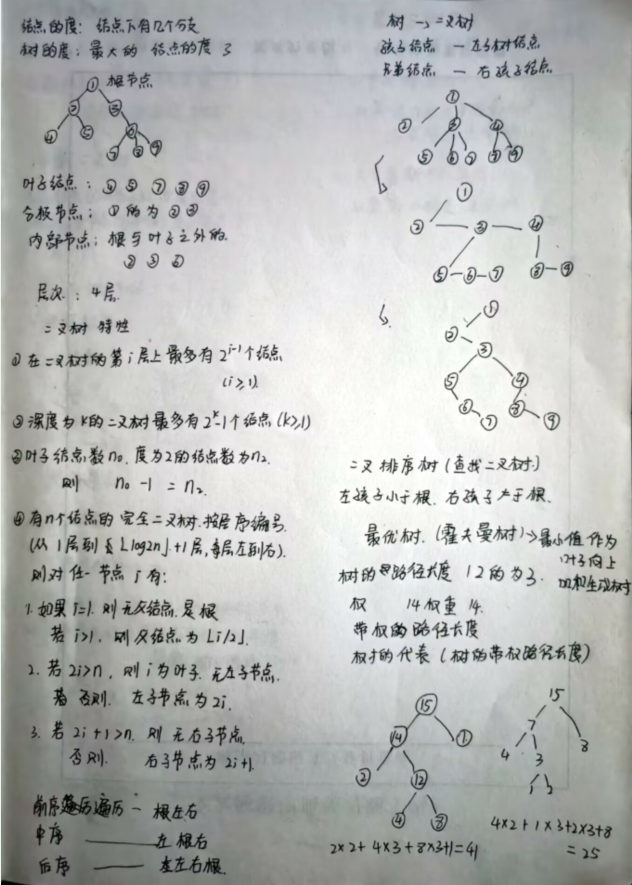 结点的度: 结点下有几个分支
树的度: 最大的 结点的度 3
① 根节点
② ③
④ ⑤ ⑥
⑦ ⑧ ⑨
叶子结点: ④ ⑤ ⑦ ⑧ ⑨
分枝节点: ① 的为 ② ③
内部节点: 根与叶子之外的.
② ③ ⑥
层次: 4层.
二叉树 特性
① 在二叉树的第 i 层上最多有 2^{i-1} 个结点
(i≥1).
② 深度为 k 的二叉树最多有 2^k-1 个结点 (k≥1)
③ 叶子结点数 n₀. 度为2的结点数为 n₂.
则 n₀ -1 = n₂.
④ 有n个结点的 完全二叉树. 按层序编号.
(从 1层到 ⌊log2n⌋+1层, 每层左到右).
则对 任一节点 i 有:
1. 如果 i=1. 则 无父结点. 是根
若 i>1. 则父结点为 ⌊i/2⌋.
2. 若 2i>n, 则 i 为叶子. 无左子节点.
否则. 左子节点为 2i.
3. 若 2i+1>n. 则 无右子节点
否则. 右子节点为 2i+1.
前序遍历 — 根左右
中序 —— 左根右
后序 —— 左右根.
树 → 二叉树
孩子结点 — 左子树结点
兄弟结点 — 右孩子结点
①
② ③ ④
⑤ ⑥ ⑦ ⑧ ⑨
①
② ③ ④
⑤ ⑥ ⑦ ⑧ ⑨
①
②
③
⑤ ④
⑥ ⑧
⑦ ⑨
二叉排序树 (查找二叉树.)
左孩小于根. 右孩大于根.
最优树. (霍夫曼树) → 最小值作为
叶子向上
加和生成树
树的路径长度 12的为3.
权 14权重 14.
带权的路径长度
树的代表 (树的带权路径长度)
⑮
⑭ ①
② ⑫
④ ⑧
2×2+4×3+8×3+1=41
15
7 8
4 3
1 2
4×2+1×3+2×3+8
=25